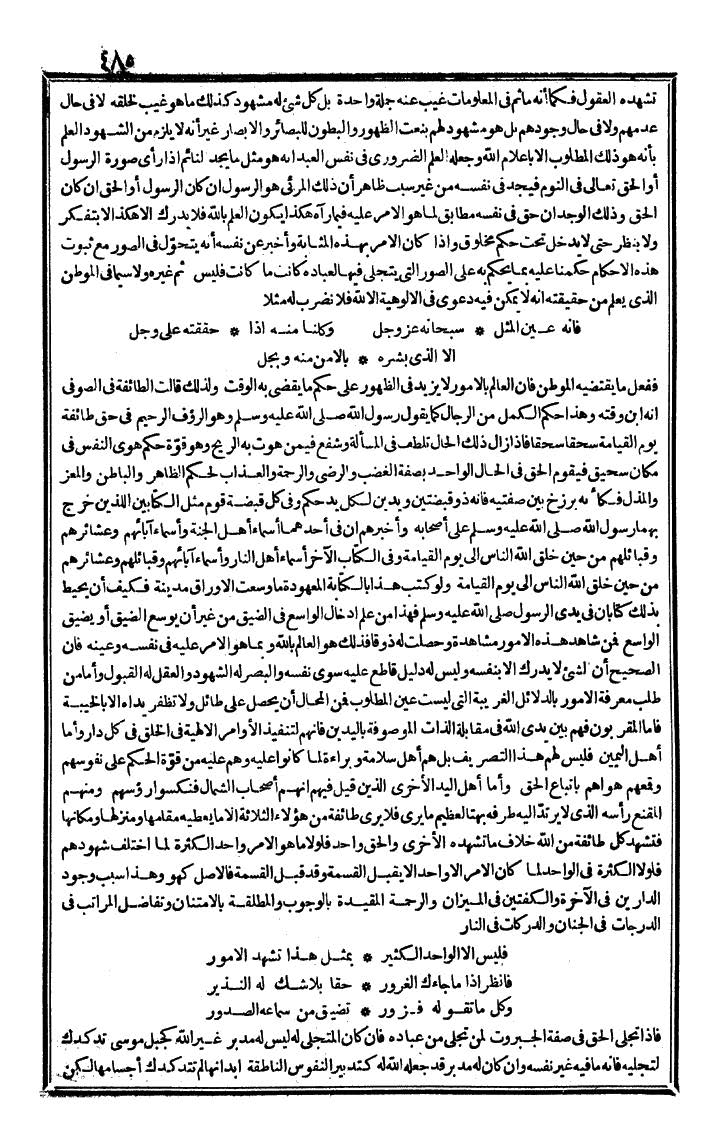 ٤٨٥
تشهده العقول فكما أنه ماثم فى المعلومات غيب عنه جملة واحدة بل كل شئ له مشهود كذلك ما هو غيب لخلقه لا فى حال
عدمهم ولا فى حال وجودهم بل هو مشهود لهم بنعت الظهور والبطون للبصائر والابصار غير أنه لا يلزم من الشهود العلم
بأنه هو ذلك المطلوب الا باعلام الله وجعله العلم الضرورى فى نفس العبد انه هو مثل ما يجد لنائم اذا رأى صورة الرسول
أو الحق تعالى فى النوم فيجد فى نفسه من غير سبب ظاهر أن ذلك المرئى هو الرسول ان كان الرسول أو الحق ان كان
الحق وذلك الوجدان حق فى نفسه مطابق لما هو الامر عليه فيما رآه هكذا يكون العلم بالله فلا يدرك الا هكذا لا بتفكر
ولا بنظر حتى لا يدخل تحت حكم مخلوق واذا كان الامر بهذه المثابة وأخبر عن نفسه أنه يتحول فى الصور مع ثبوت
هذه الاحكام حكمنا عليه بما يحكم به على الصور التى يتجلى فيها لعباده كانت ما كانت فليس ثم غيره ولا سيما فى الموطن
الذى يعلم من حقيقته انه لا يمكن فيه دعوى فى الالوهية الا لله فلا نضرب له مثلا
فانه عين المثل * سبحانه عز وجل وكلنا منه اذا * حققته على وجل
الا الذى بشره * بالامن منه وبجل
ففعل ما يقتضيه الموطن فان العالم بالامور لا يزيد فى الظهور على حكم ما يقضى به الوقت ولذلك قالت الطائفة فى الصوفى
انه ابن وقته وهذا حكم الكمل من الرجال كما يقول رسول الله صلى الله عليه وسلم وهو الرؤف الرحيم فى حق طائفة
يوم القيامة سحقا سحقا فاذا زال ذلك الحال تلطف فى المسألة وشفع فيمن هوت به الريح وهو قوة حكم هوى النفس فى
مكان سحيق فيقوم الحق فى الحال الواحد بصفة الغضب والرضى والرحمة والعذاب لحكم الظاهر والباطن والمعز
والمذل فكأنه برزخ بين صفتيه فانه ذو قبضتين ويدين لكل يد حكم وفى كل قبضة قوم مثل الكتابين اللذين خرج
بهما رسول الله صلى الله عليه وسلم على أصحابه وأخبرهم ان فى أحدهما أسماء أهل الجنة وأسماء آبائهم وعشائرهم
وقبائلهم من حين خلق الله الناس الى يوم القيامة وفى الكتاب الآخر أسماء أهل النار وأسماء آبائهم وقبائلهم وعشائرهم
من حين خلق الله الناس الى يوم القيامة ولو كتب هذا بالكتابة المعهودة ما وسعت الاوراق مدينة فكيف أن يحيط
بذلك كتابان فى يدى الرسول صلى الله عليه وسلم فهذا من علم ادخال الواسع فى الضيق من غير أن يوسع الضيق أو يضيق
الواسع فمن شاهد هذه الامور مشاهدة وحصلت له ذوقا فذلك هو العالم بالله وبما هو الامر عليه فى نفسه وعينه فان
الصحيح أن لشئ لا يدرك الا بنفسه وليس له دليل قاطع عليه سوى نفسه والبصر له الشهود والعقل له القبول وأما من
طلب معرفة الامور بالدلائل الغريبة التى ليست عين المطلوب فمن المحال أن يحصل على طائل ولا تظفر يداه الا بالخيبة
فاما المقربون فهم بين يدى الله فى مقابلة الذات الموصوفة باليدين فانهم لتنفيذ الأوامر الالهية فى الخلق فى كل دار وأما
أهل اليمين فليس لهم هذا التصريف بل هم أهل سلامة وبراءة لما كانوا عليه وهم عليه من قوة الحكم على نفوسهم
وقمعهم هواهم باتباع الحق وأما أهل اليد الأخرى الذين قيل فيهم انهم أصحاب الشمال فنكسوا رؤسهم ومنهم
المقنع رأسه الذى لا يرتد اليه طرفه بهتا لعظيم ما يرى فلا يرى طائفة من هؤلاء الثلاثة الا ما يعطيه مقامها ومنزلها ومكانها
فتشهد كل طائفة من الله خلاف ما تشهده الأخرى والحق واحد فلولا ما هو الامر واحد الكثرة لما اختلف شهودهم
فلولا الكثرة فى الواحد لما كان الامر الا واحدا لا يقبل القسمة وقد قبل القسمة فالاصل كهو وهذا سبب وجود
الدارين فى الآخرة والكفتين فى الميزان والرحمة المقيدة بالوجوب والمطلقة بالامتنان وتفاضل المراتب فى
الدرجات فى الجنان والدركات فى النار
فليس الا الواحد الكثير * بمثل هذا تشهد الامور
فانظر اذا ما جاءك الغرور * حقا بلا شك له النذير
وكل ما تقوله فزور * تضيق من سماعه الصدور
فاذا تجلى الحق فى صفة الجبروت لمن تجلى من عباده فان كان المتجلى له ليس له مدبر غير الله كجبل موسى تدكدك
لتجليه فانه ما فيه غير نفسه وان كان له مدبر قد جعله الله له كتدبير النفوس الناطقة ابدانها لم تتدكدك أجسامها لكن